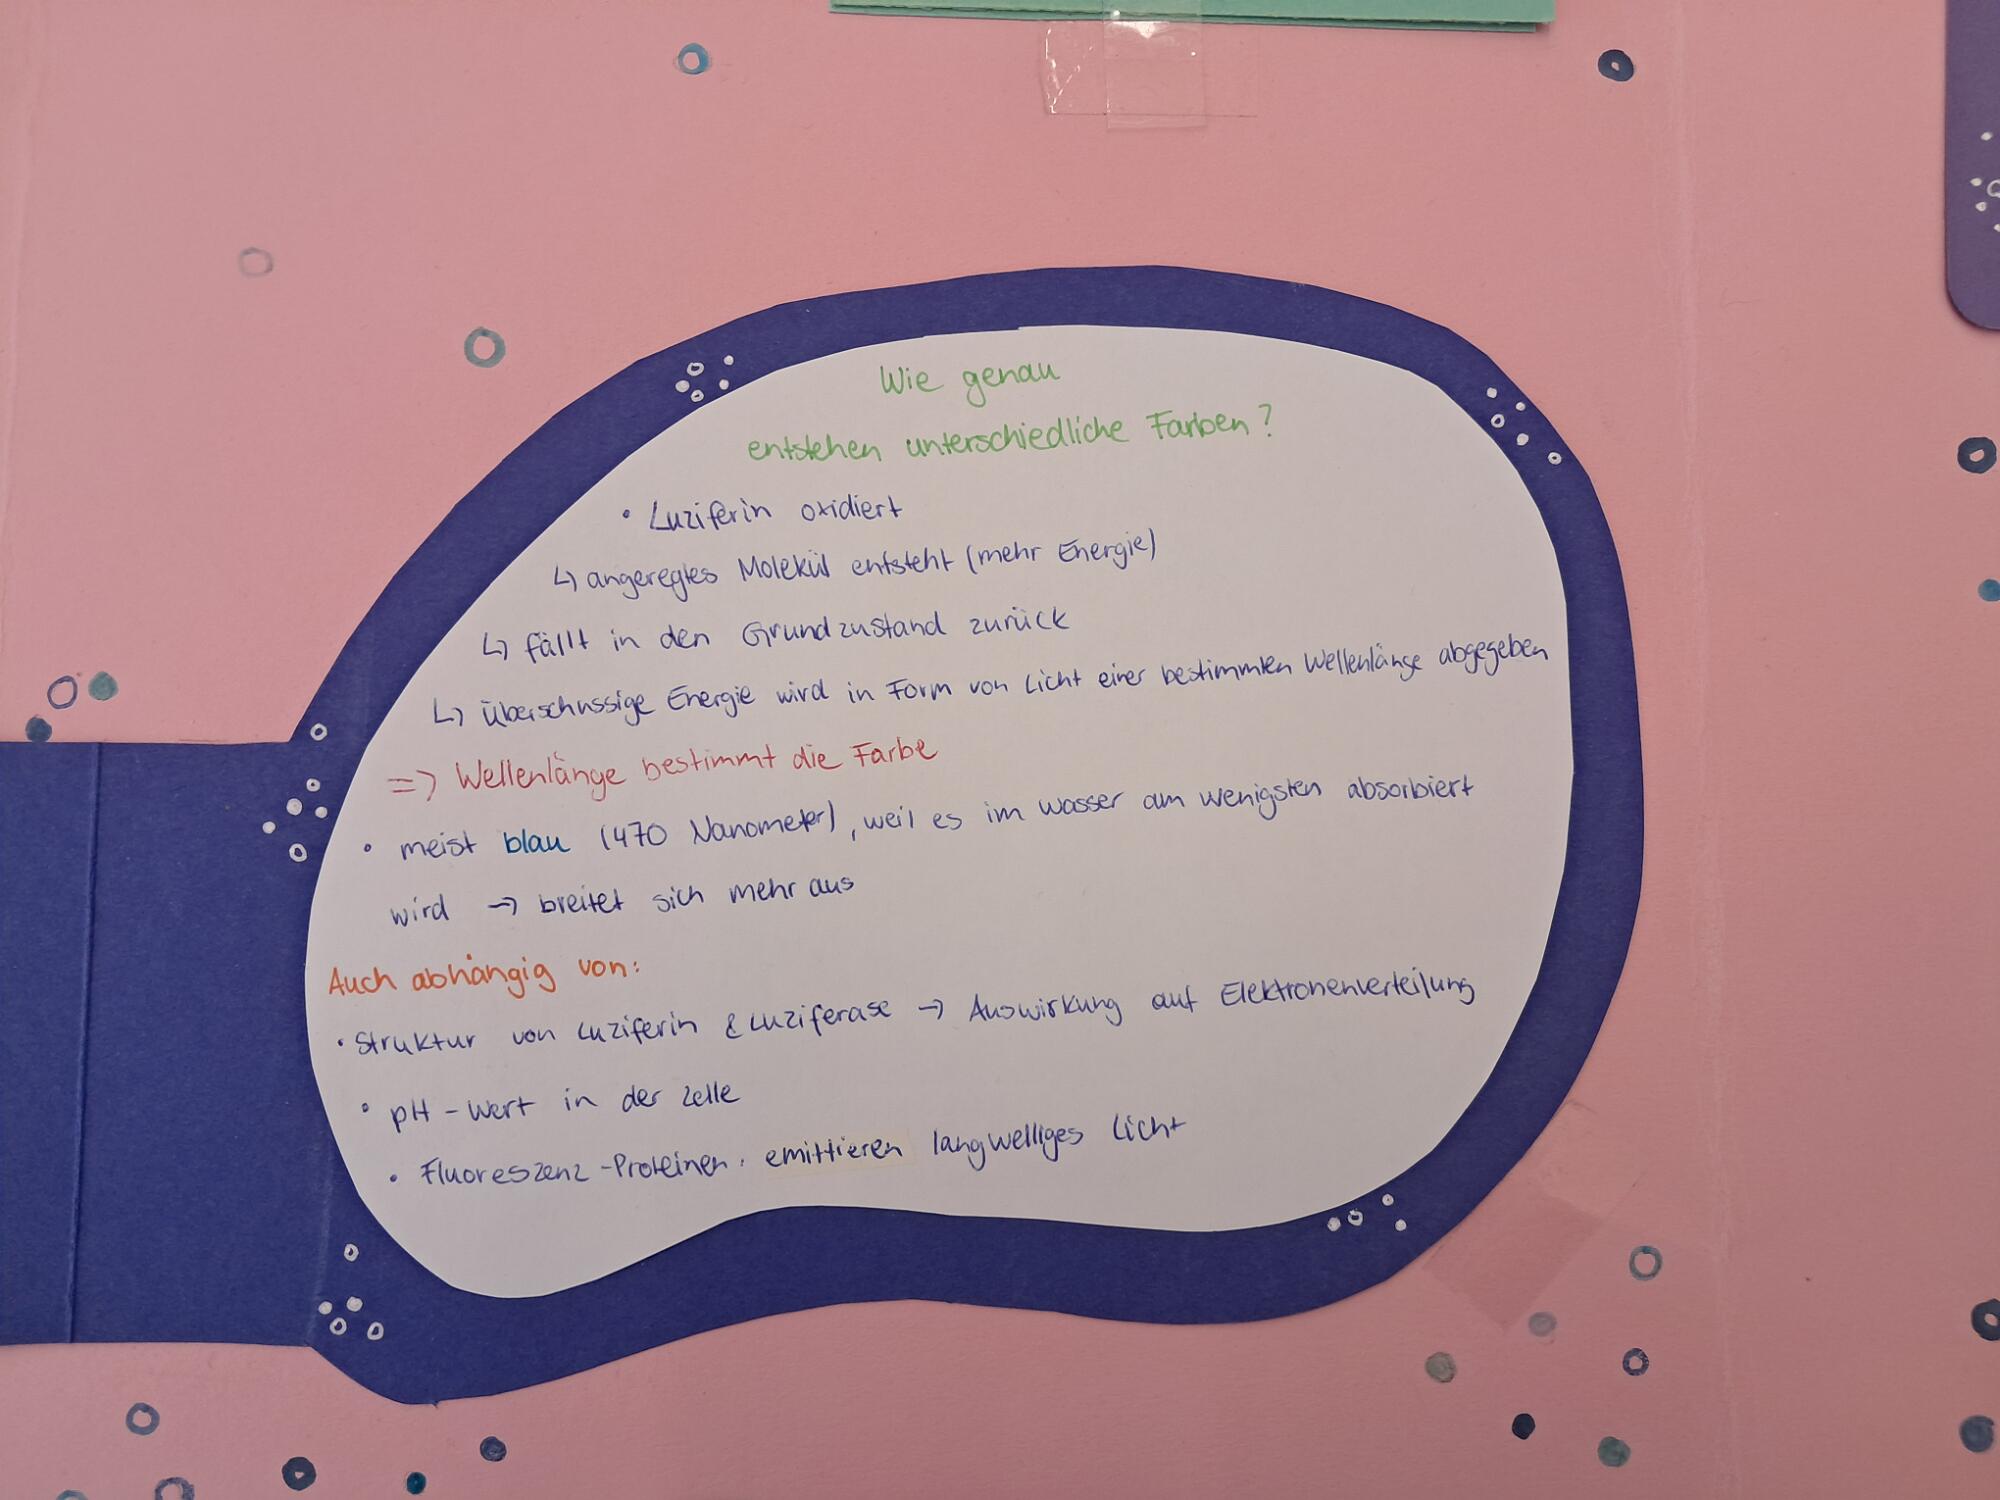 Wie genau
entstehen unterschiedliche Farben?
• Luziferin oxidiert
↳ angeregtes Molekül entsteht (mehr Energie)
↳ fällt in den Grundzustand zurück
↳ überschussige Energie wird in Form von Licht einer bestimmten Wellenlänge abgegeben
=> Wellenlänge bestimmt die Farbe
• meist blau (470 Nanometer), weil es im wasser am wenigsten absorbiert
wird → breitet sich mehr aus
Auch abhängig von:
• Struktur von Luziferin & Luziferase → Auswirkung auf Elektronenverteilung
• pH-Wert in der Zelle
• Fluoreszenz-Proteinen, emittieren langwelliges Licht